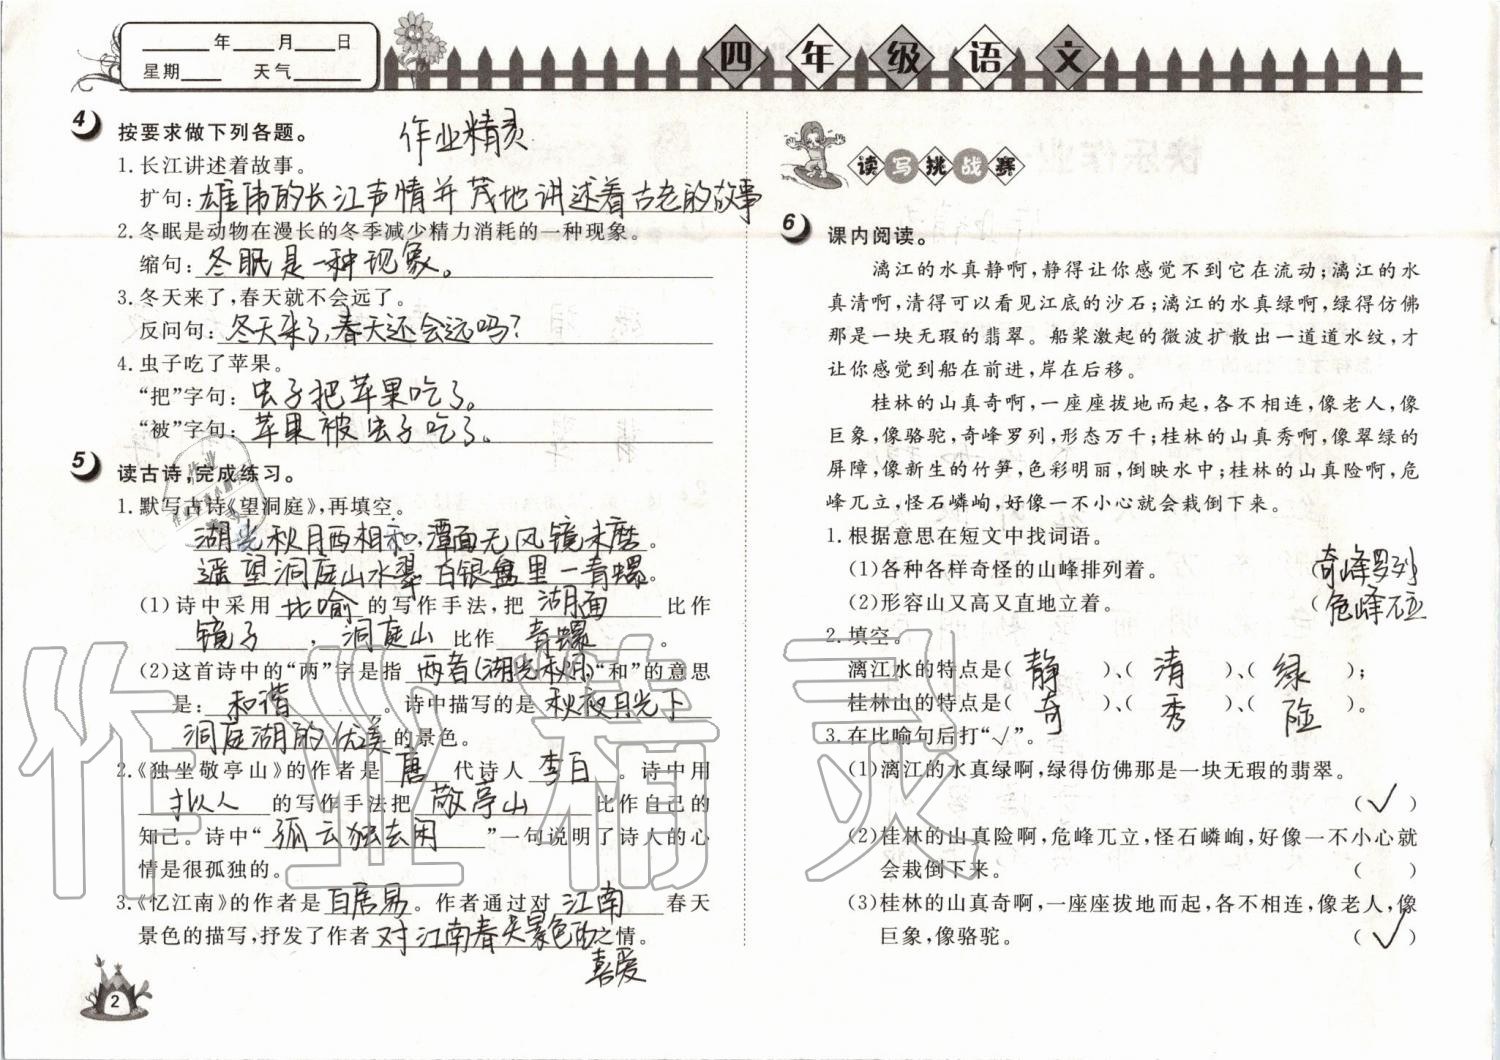 ____年____月____日
星期____ 天气____
四年级语文
4 按要求做下列各题。 作业精灵
1.长江讲述着故事。
扩句:雄伟的长江声情并茂地讲述着古老的故事
2.冬眠是动物在漫长的冬季减少精力消耗的一种现象。
缩句:冬眠是一种现象。
3.冬天来了,春天就不会远了。
反问句:冬天来了,春天还会远吗?
4.虫子吃了苹果。
“把”字句:虫子把苹果吃了。
“被”字句:苹果被虫子吃了。
5 读古诗,完成练习。
1.默写古诗《望洞庭》,再填空。
湖光秋月两相和,潭面无风镜未磨。
遥望洞庭山水翠 白银盘里一青螺。
(1)诗中采用 比喻 的写作手法,把 湖面 比作
镜子 , 洞庭山 比作 青螺 。
(2)这首诗中的“两”字是指 两者(湖光秋月),“和”的意思
是: 和谐 。诗中描写的是 秋夜月光下
洞庭湖的优美 的景色。
2.《独坐敬亭山》的作者是 唐 代诗人 李白 。诗中用
拟人 的写作手法把 敬亭山 比作自己的
知己。诗中“ 孤云独去闲 ”一句说明了诗人的心
情是很孤独的。
3.《忆江南》的作者是 白居易。作者通过对 江南 春天
景色的描写,抒发了作者 对江南春天景色的之情。
喜爱
2
读写挑战赛
6 课内阅读。
漓江的水真静啊,静得让你感觉不到它在流动;漓江的水
真清啊,清得可以看见江底的沙石;漓江的水真绿啊,绿得仿佛
那是一块无瑕的翡翠。船桨激起的微波扩散出一道道水纹,才
让你感觉到船在前进,岸在后移。
桂林的山真奇啊,一座座拔地而起,各不相连,像老人,像
巨象,像骆驼,奇峰罗列,形态万千;桂林的山真秀啊,像翠绿的
屏障,像新生的竹笋,色彩明丽,倒映水中;桂林的山真险啊,危
峰兀立,怪石嶙峋,好像一不小心就会栽倒下来。
1.根据意思在短文中找词语。
(1)各种各样奇怪的山峰排列着。 (奇峰罗列
(2)形容山又高又直地立着。 (危峰兀立
2.填空。
漓江水的特点是( 静 )、( 清 )、( 绿 );
桂林山的特点是( 奇 )、( 秀 )、( 险 )。
3.在比喻句后打“√”。
(1)漓江的水真绿啊,绿得仿佛那是一块无瑕的翡翠。
(√)
(2)桂林的山真险啊,危峰兀立,怪石嶙峋,好像一不小心就
会栽倒下来。 ( )
(3)桂林的山真奇啊,一座座拔地而起,各不相连,像老人,像
巨象,像骆驼。 (√)
作业精灵